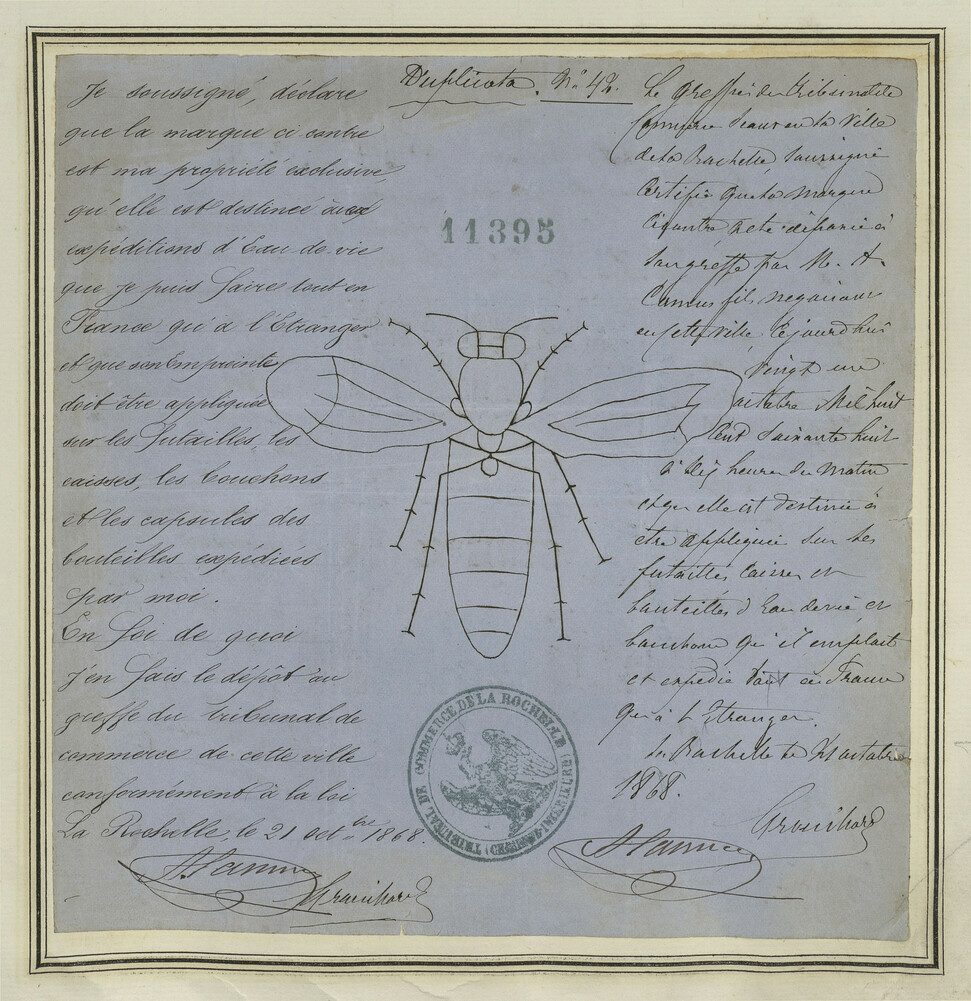 Duplicata. N° 42.
11395
Je soussigné, déclare
que la marque ci contre
est ma propriété exclusive,
qu'elle est destinée aux
expéditions d'Eau de vie
que je puis faire tout en
France qu'à l'Etranger
et que son Empreinte
doit être appliquée
sur les futailles, les
caisses, les bouchons
et les capsules des
bouteilles expédiées
par moi.
En foi de quoi
j'en fais le dépôt au
greffe du tribunal de
commerce de cette ville
conformément à la loi
La Rochelle le 21 octbre 1868.
Le greffier du Tribunal de
Commerce séant en la Ville
de La Rochelle, soussigné
Certifie que la marque
ci contre a été déposée à
son greffe par M. A.
Camus fils négociant
en cette ville, ce jourd'hui
vingt une
octobre Mil huit
Cent soixante huit
à dix heures du matin
et qu'elle est destinée à
être appliquée sur les
futailles caisses et
bouteilles d'Eau de vie et
bouchons qu'il emploit
et expédie tant en France
qu'à l'Etranger.
La Rochelle le 21 octobre
1868.
TRIBUNAL DE COMMERCE DE LA ROCHELLE
(CHARENTE INFERIEURE)